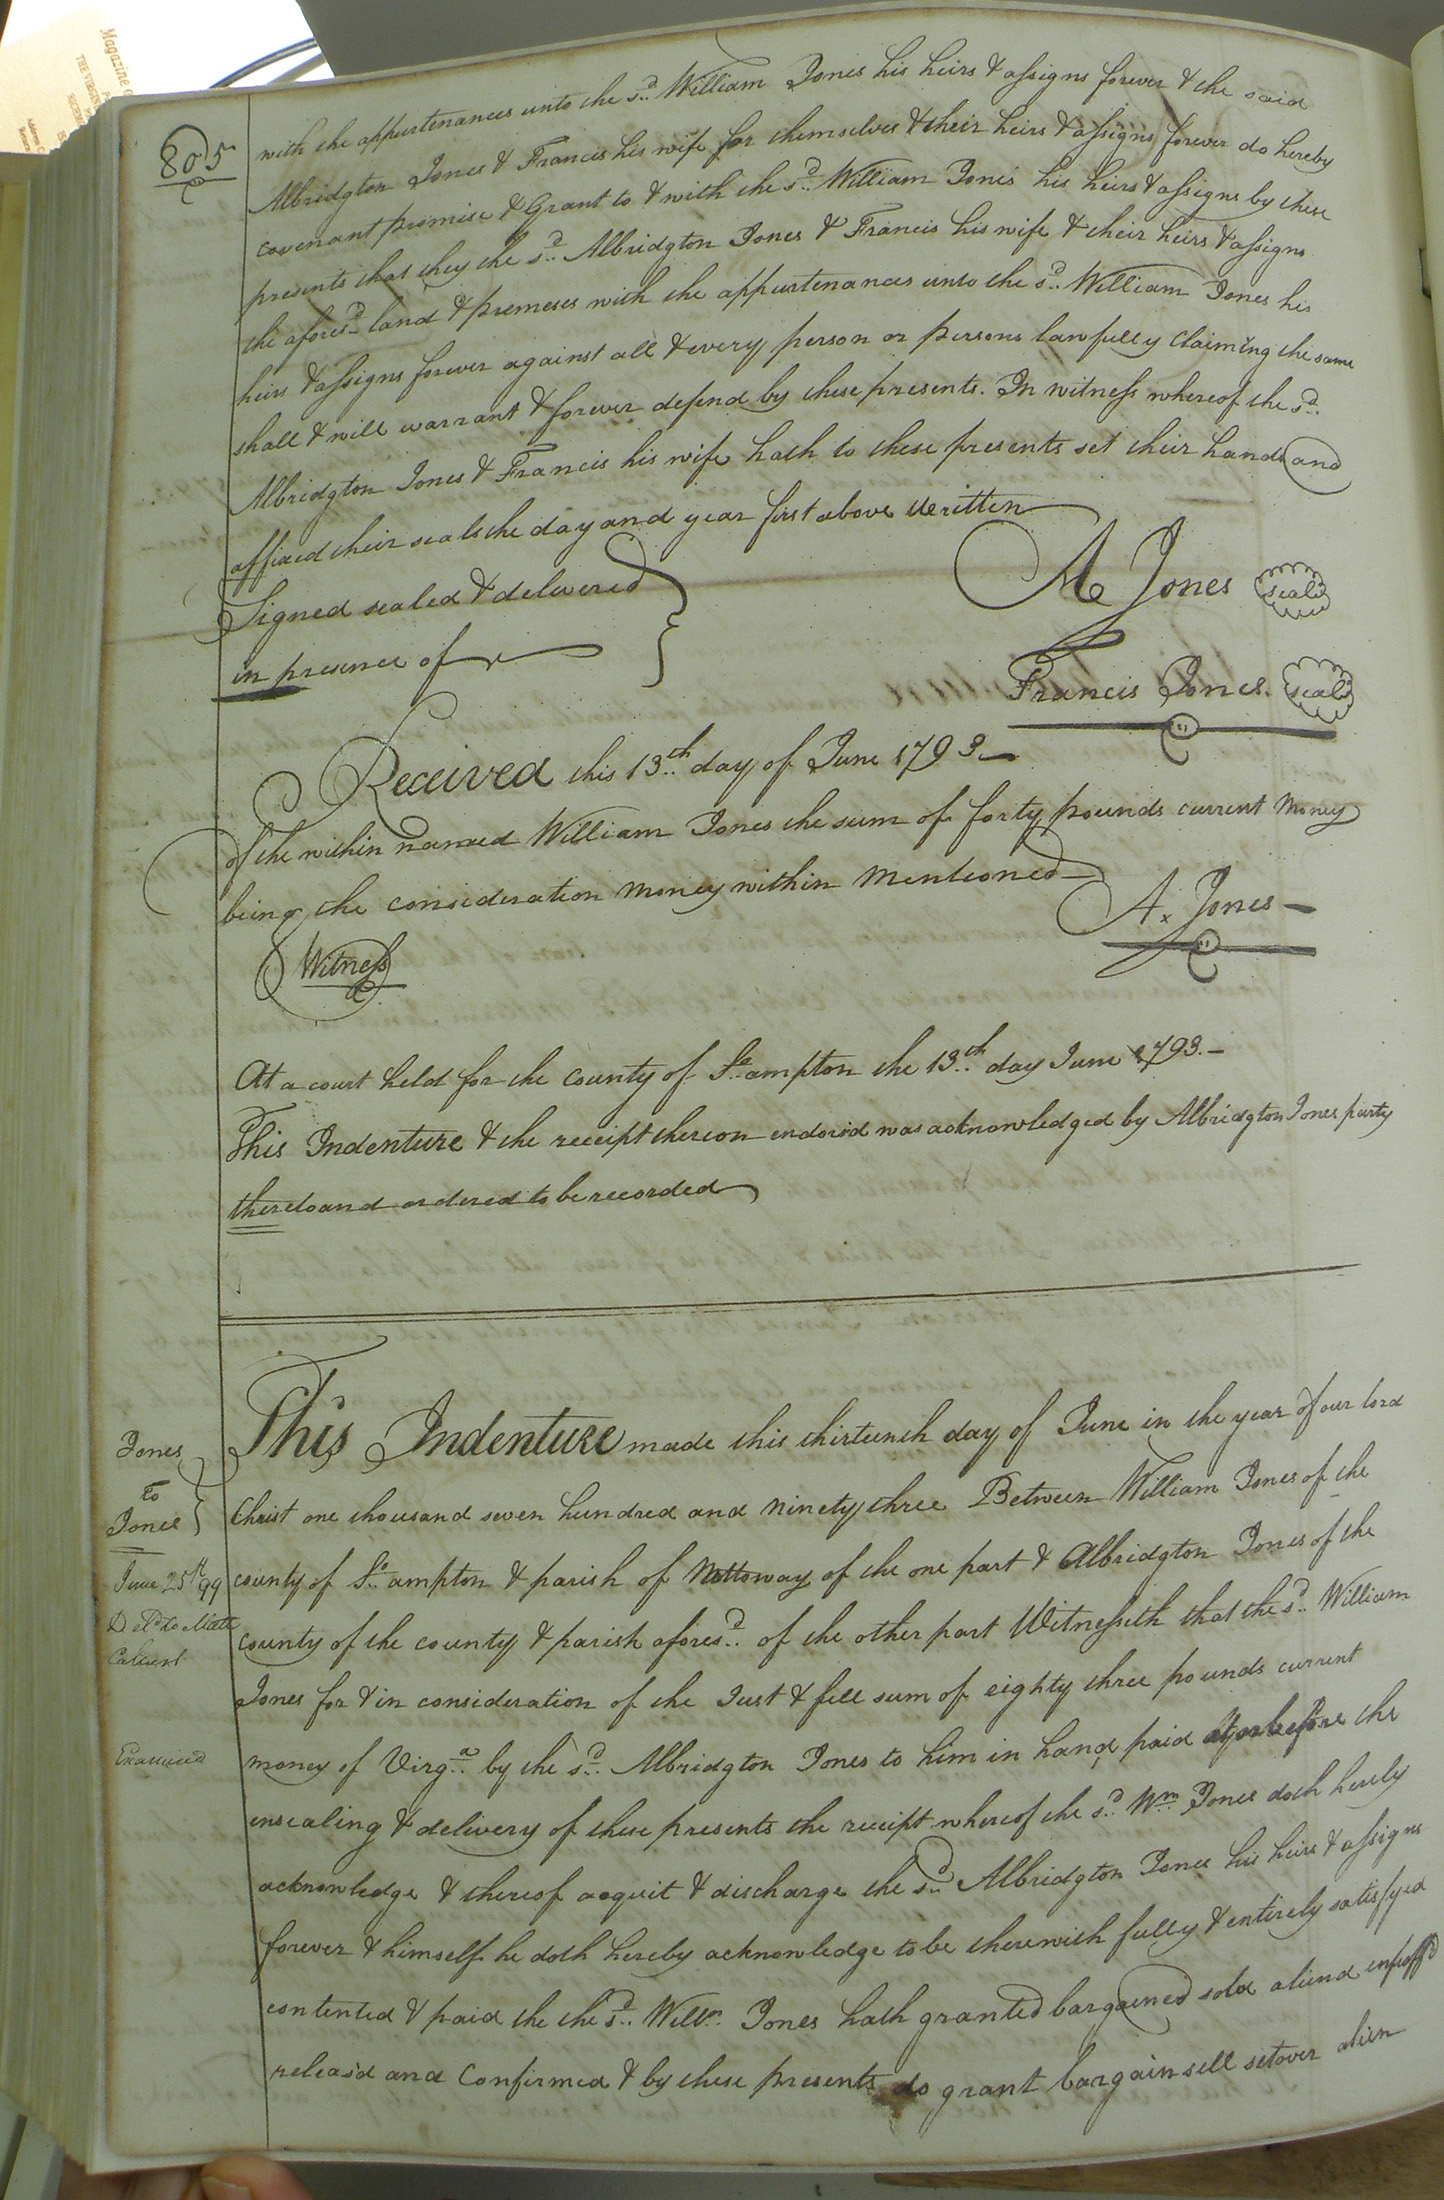 805
with the appurtenances unto the sd. William Jones his heirs & assigns forever & the said
Albridgton Jones & Francis his wife for themselves & their heirs & assigns forever do hereby
covenant promise & Grant to & with the sd. William Jones his heirs & assigns by these
presents that they the sd. Albridgton Jones & Francis his wife & their heirs & assigns
the aforesd. land & premeses with the appurtenances unto the sd. William Jones his
heirs & assigns forever against all & every person or persons lawfully Claiming the same
shall & will warrant & forever defend by these presents. In witness whereof the sd.
Albridgton Jones & Francis his wife hath to these presents set their hands and
affixed their seals the day and year first above written
Signed sealed & delivered
in presence of
A Jones seal
Francis Jones. seal
Received this 13th. day of June 1793
of the within named William Jones the sum of forty pounds current money
being the consideration money within mentioned
A. Jones
Witness
At a court held for the county of So.ampton the 13th. day June 1793.
This Indenture & the receipt thereon endorsd was acknowledged by Albridgton Jones party
thereto and ordered to be recorded
Jones
to
Jones
June 25th 99
Deld to Matt
Calvert
Examined
This Indenture made this thirteenth day of June in the year of our lord
Christ one thousand seven hundred and ninety three Between William Jones of the
county of So.ampton & parish of Nottoway of the one part & Albridgton Jones of the
county of the county & parish aforesd. of the other part Witnesseth that the sd. William
Jones for & in consideration of the Just & full sum of eighty three pounds current
money of Virga. by the sd. Albridgton Jones to him in hand paid at or before the
ensealing & delivery of these presents the receipt whereof the sd. Wm. Jones doth hereby
acknowledge & thereof acquit & discharge the sd. Albridgton Jones his heirs & assigns
forever & himself he doth hereby acknowledge to be therewith fully & entirely satisfyed
contented & paid the the sd. Willm. Jones hath granted bargained sold aliend enfeoffd
releasd and Confirmed & by these presents do grant bargain sell setover alien